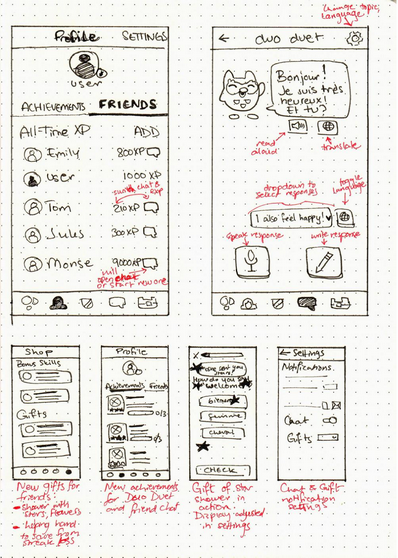 change topic,
language!
Profile SETTINGS
user
ACHIEVEMENTS FRIENDS
All-Time XP ADD
Emily 800XP
user 1000 XP
Tom 210XP
Jules 300XP
Monse 9000XP
will
open chat
or start new one
duo duet
Bonjour!
Je suis très
heureux!
Et tu?
read
aloud
translate
dropdown to
select responses
toggle
language
I also feel happy!
speak response
write response
Shop
Bonus Skills
Gifts
New gifts for
friends:
shower with
stars, flowers
helping hand
to save from
streak
Profile
Achievements Friends
0/3
New achievements
for Duo Duet
and friend chat
How do you say
"welcome"
CHECK
Gift of star
shower in
action.
Display adjusted
in settings
Settings
Notifications
Chat
Gifts
Chat & Gift
notification
settings